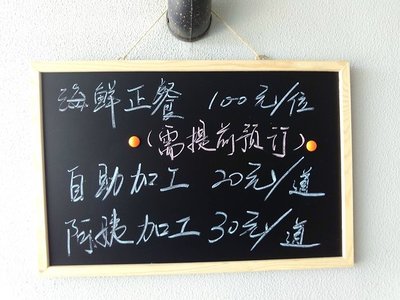 海鲜正餐 100元/位
(需提前预订)
自助加工 20元/道
阿姨加工 30元/道